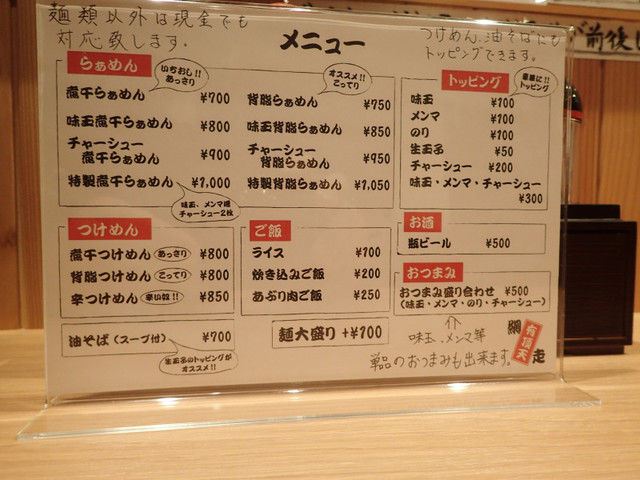 麺類以外は現金でも
対応致します.
メニュー
つけめん、油そばにも
トッピングできます。
が前後
らぁめん
いちおし!!
あっさり
煮干らぁめん ¥700
味玉煮干らぁめん ¥800
チャーシュー
煮干らぁめん ¥900
特製煮干らぁめん ¥1,000
味玉、メンマ増
チャーシュー2枚
オススメ!!
こってり
背脂らぁめん ¥750
味玉背脂らぁめん ¥850
チャーシュー
背脂らぁめん ¥950
特製背脂らぁめん ¥1,050
トッピング
豪華に!!
トッピング
味玉 ¥100
メンマ ¥100
のり ¥100
生玉子 ¥50
チャーシュー ¥200
味玉・メンマ・チャーシュー
¥300
つけめん
煮干つけめん あっさり ¥800
背脂つけめん こってり ¥800
辛つけめん 辛い麺!! ¥850
ご飯
ライス ¥100
炊き込みご飯 ¥200
あぶり肉ご飯 ¥250
お酒
瓶ビール ¥500
おつまみ
おつまみ盛り合わせ ¥500
(味玉・メンマ・のり・チャーシュー)
油そば(スープ付) ¥700
生玉子のトッピングが
オススメ!!
麺大盛り +¥100
味玉、メンマ等
単品のおつまみも出来ます。
網走
有頂天